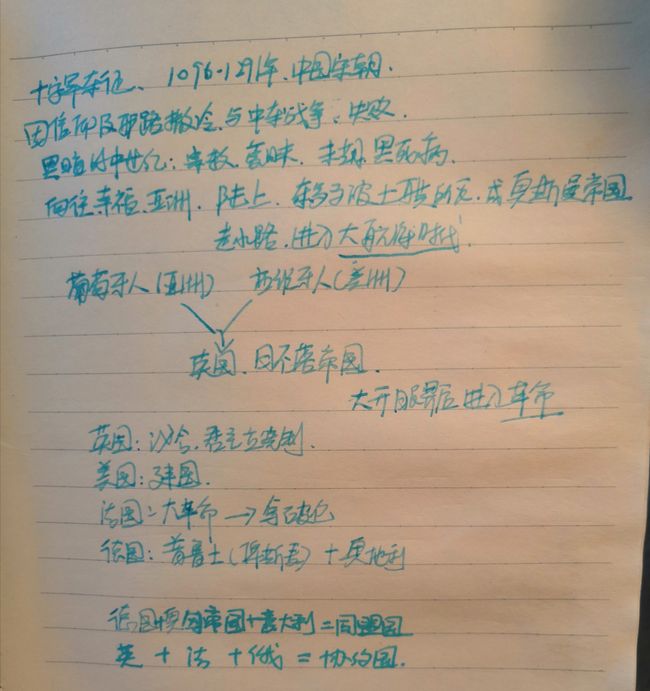 十字军东征、1096-1291年、中国宋朝.
因信仰及耶路撒冷、与中东战争、失败.
黑暗的中世纪:宗教、愚昧、末期黑死病.
向往幸福、亚洲、陆上、东罗马被土耳其所灭、成奥斯曼帝国
走水路、进入大航海时代
葡萄牙人(亚洲) 西班牙人(美洲)
英国、日不落帝国.
大开眼界后进入革命
英国:议会、君主立宪制.
美国:建国.
法国:大革命→拿破仑
德国:普鲁士(俾斯麦)+奥地利
德国+奥匈帝国+意大利=同盟国
英+法+俄=协约国.